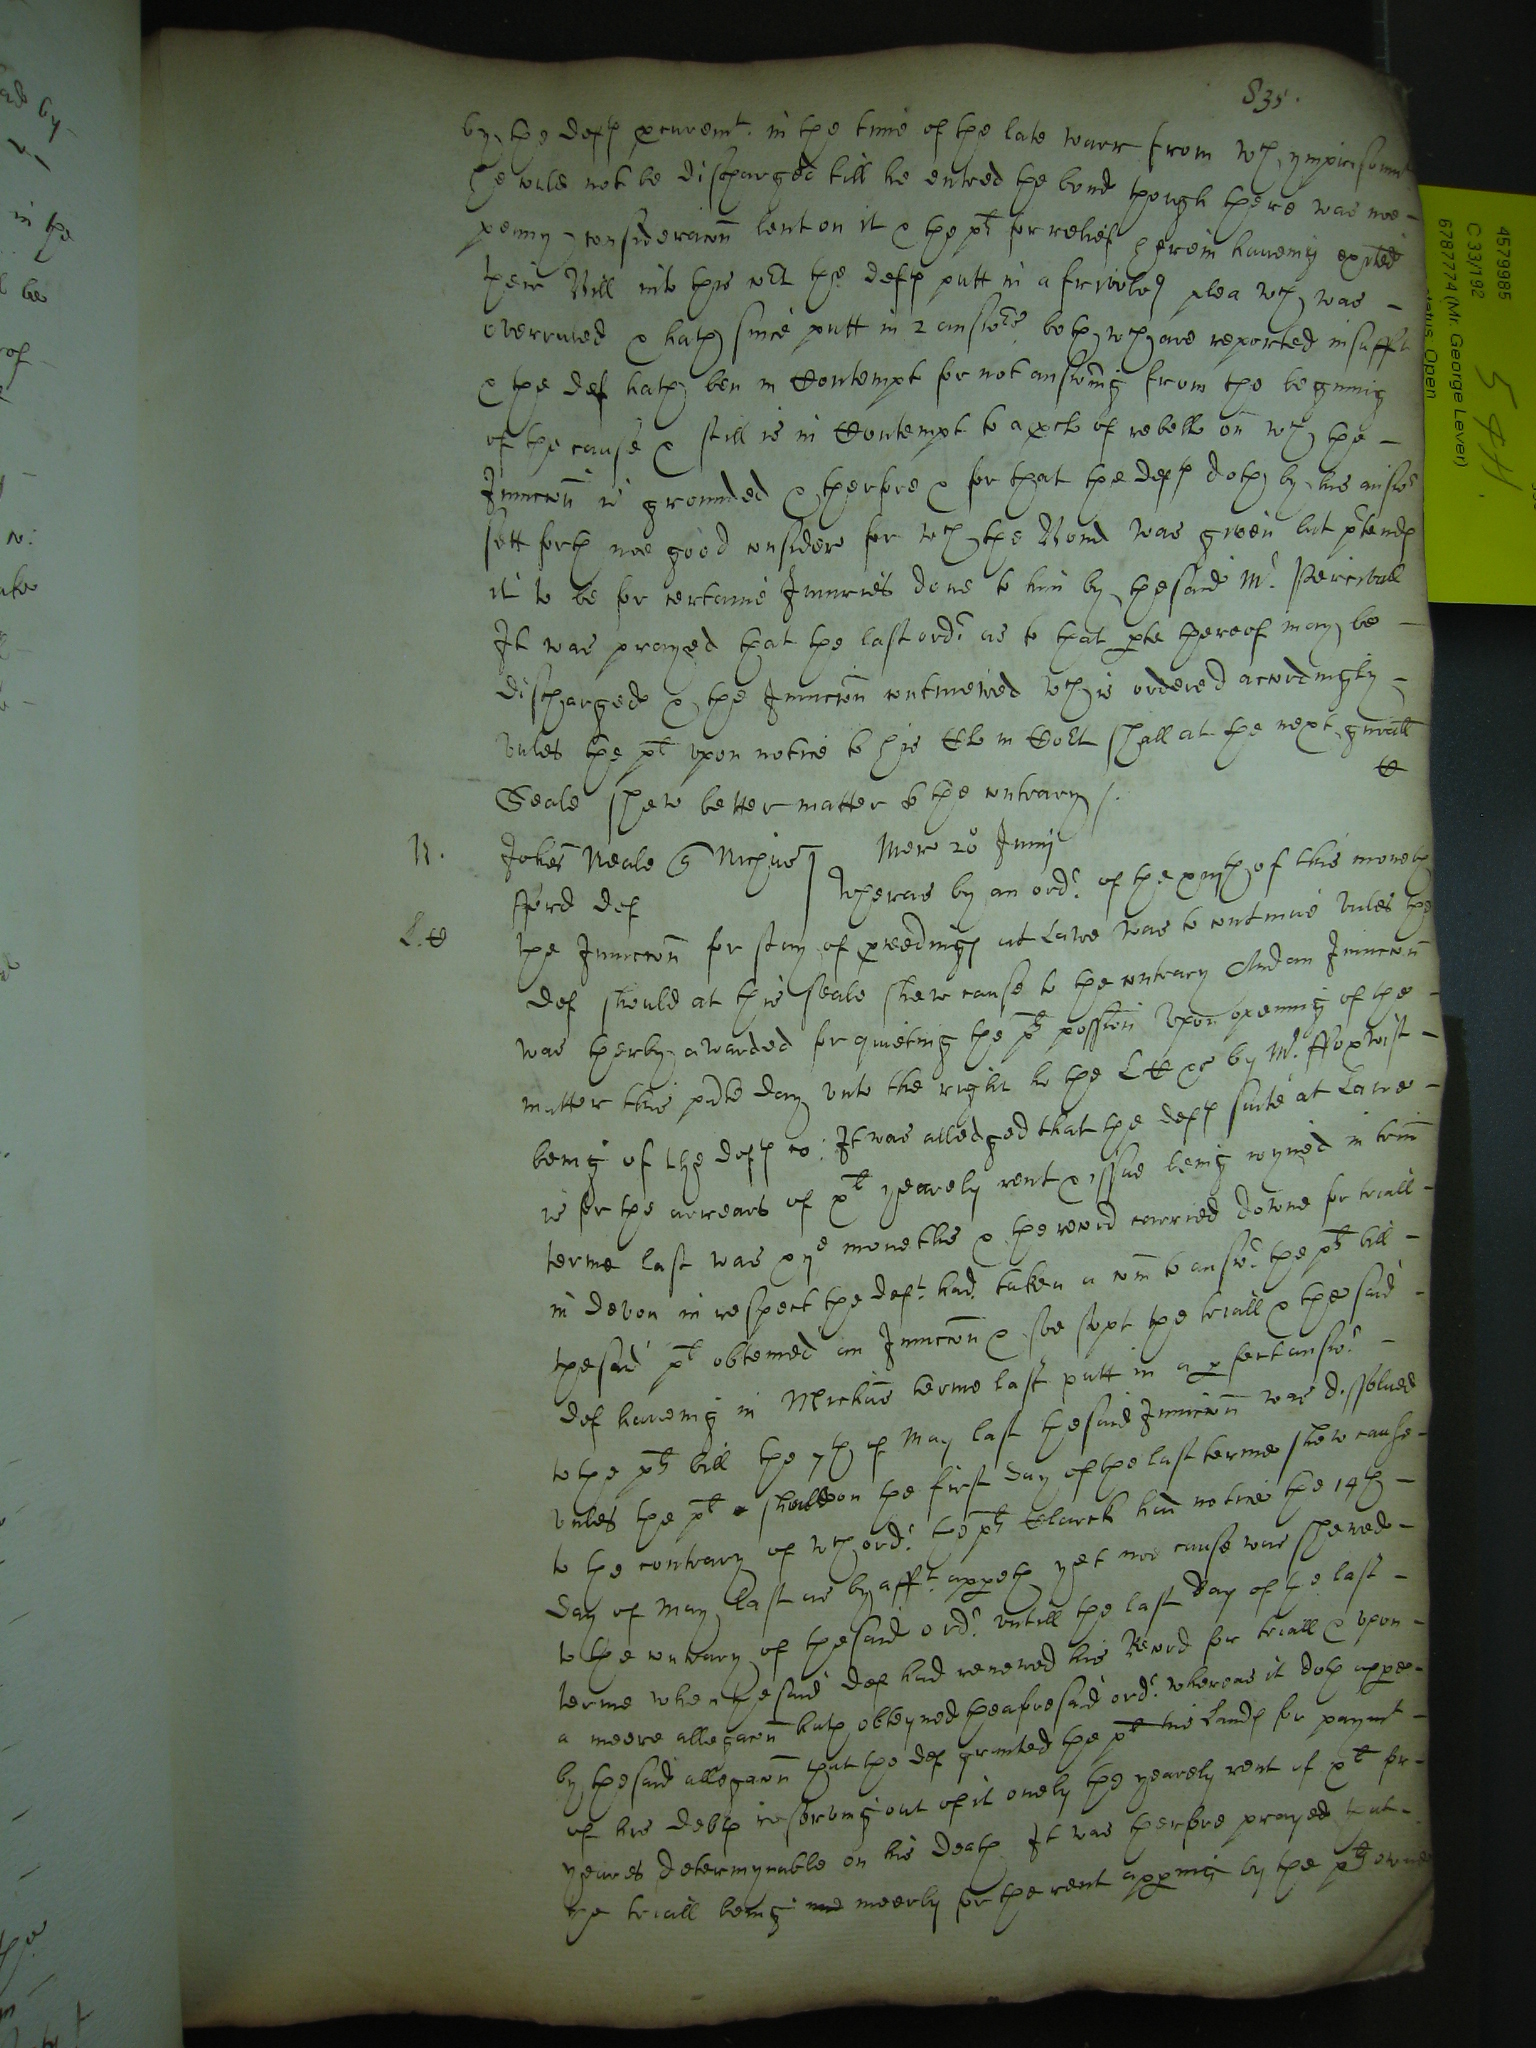 835.
by the deft procuremt. in the time of the late warr from wch ymprisonmt
he culd not be discharged till he entred the bond though there was noe
penny consideracon lent on it & the plt for relief herein haveing exhited
their Bill into this Cort the deft putt in a frivolous plea wch was
overruled & hath since putt in 2 answrs both wch are reported insufft
& the def hath ben in Contempt for not answring from the beginning
of the cause & still is in Contempt to a proclo of rebellon wch the
Iniuncon is grounded & therfore & for that the deft doth by his answr
sett forth noe good consideracon for wch the Bond was given but prtends
it to be for certaine Iniuries done to him by the said Mr. Percivall
It was prayed that the last ordr. as to that pte thereof may be
discharged & the Iniuncon continewed wch is ordered accordingly
unles the plt upon notice to his Cl in Cort shall at the next gnrall
Seale shew better matter to the contrary /.
N. Johes Neale q Nichus Mer 20 Junij
fford def Wheras by an ordr. of the xiijth of this moneth
L.C the Iniuncon for stay of pceedings at Lawe was to continue unles the
def should at this seale shew cause to the contrary And an Iniuncon
was therby awarded for quieting the plts possion Upon opening of the
matter this psnte day unto the right ho the LC &c by Mr. ffoxwist
being of the defts co: It was alledged that the defts suite at Lawe
is for the arrears of xl yearely rent & issue being ioyned in trin
terme last was xij moneths & the record carried downe for triall
in Devon in respect the deft. had taken a com to answr. the plts bill
the said plt obteined an Iniuncon & soe stopt the triall & the said
def haveing in Michas terme last putt in a pfect answr.
to the plts bill the 7th of May last the said Iniuncon was dissolved
unles the plt should on the first day of the last terme shew cause
to the contrary of wch ordr. the plts Clarck had notice the 14th
day of May last as by afft. appeth yet noe cause was shewed
to the contrary of the said ordr. untill the last day of the last
terme when the said def had renewed his Record for triall & upon
a meere allegacon hath obteyned the aforesaid ordr. whereas it doth appeare
by the said allegacon that the def granted the plt his Lands for paymt
of his debts reserving out of it onely the yearely rent of xl for
yeares determynable on his death It was therfore prayed that
the triall being meerly for the rent appering by the plts owne
4579985
C 33/192
678774 (Mr. George Lever)
Status Open